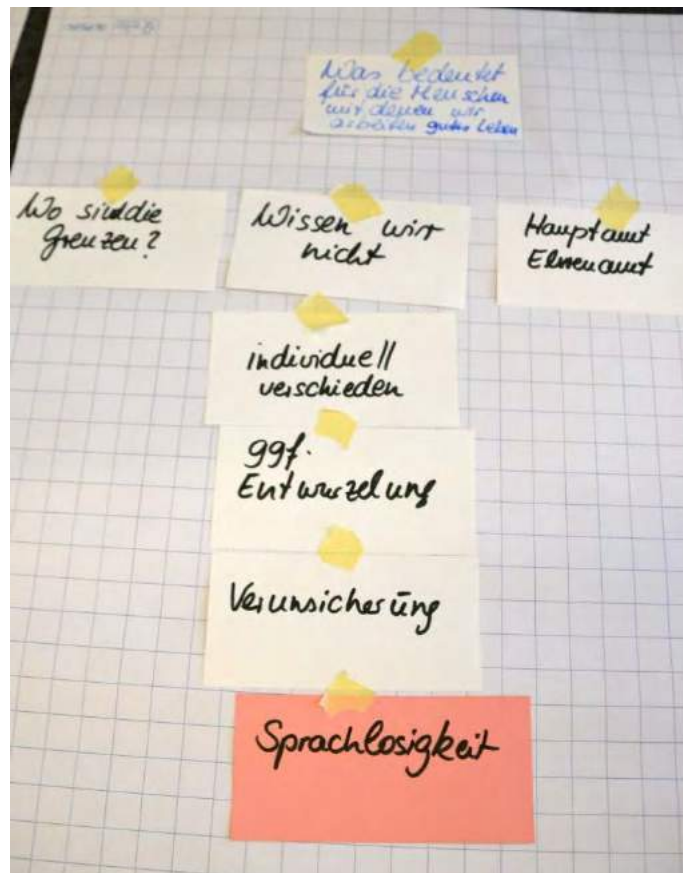 Was bedeutet
für die Menschen
mit denen wir
arbeiten gutes Leben
Wo sind die
Grenzen?
Wissen wir
nicht
Hauptamt
Ehrenamt
individuell
verschieden
ggf.
Entwurzelung
Verunsicherung
Sprachlosigkeit